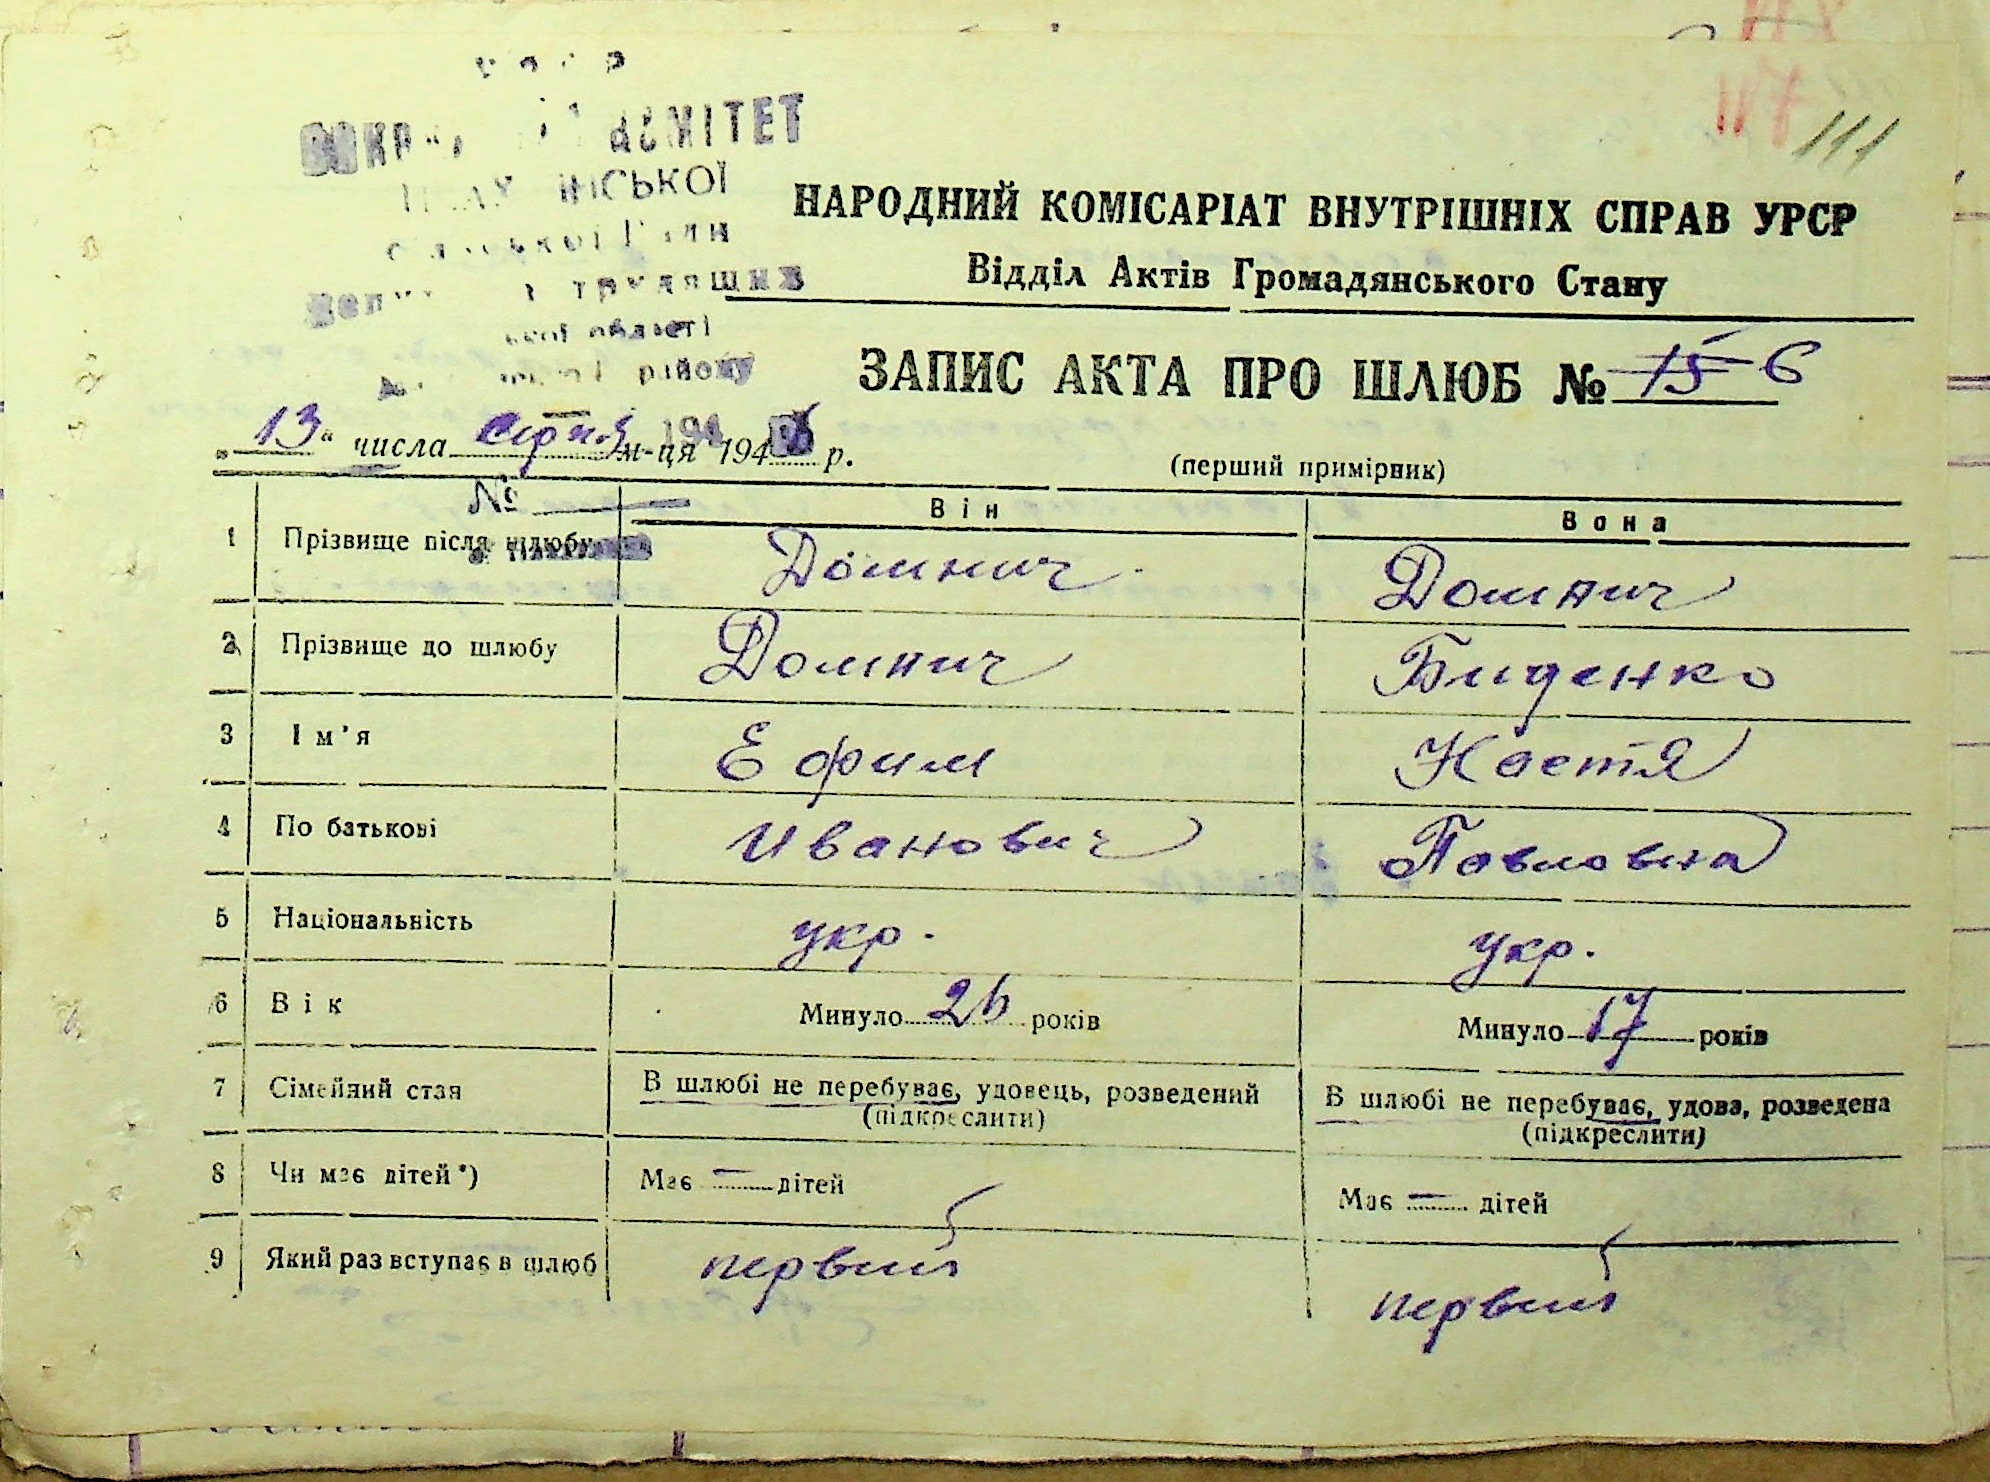 111
НАРОДНИЙ КОМІСАРІАТ ВНУТРІШНІХ СПРАВ УРСР
Відділ Актів Громадянського Стану
трудящих
області
району
ЗАПИС АКТА ПРО ШЛЮБ № 15 6
„13“ числа серпня м-ця 194 р.
(перший примірник)
№
Він Вона
1 Прізвище після шлюбу Домнич Домнич
2 Прізвище до шлюбу Домнич Биденко
3 Ім'я Ефим Настя
4 По батькові Иванович Павловна
5 Національність укр. укр.
6 Вік Минуло 26 років Минуло 17 років
7 Сімейний стан В шлюбі не перебуває, удовець, розведений (підкреслити) В шлюбі не перебуває, удова, розведена (підкреслити)
8 Чи має дітей*) Має — дітей Має — дітей
9 Який раз вступає в шлюб первий первий